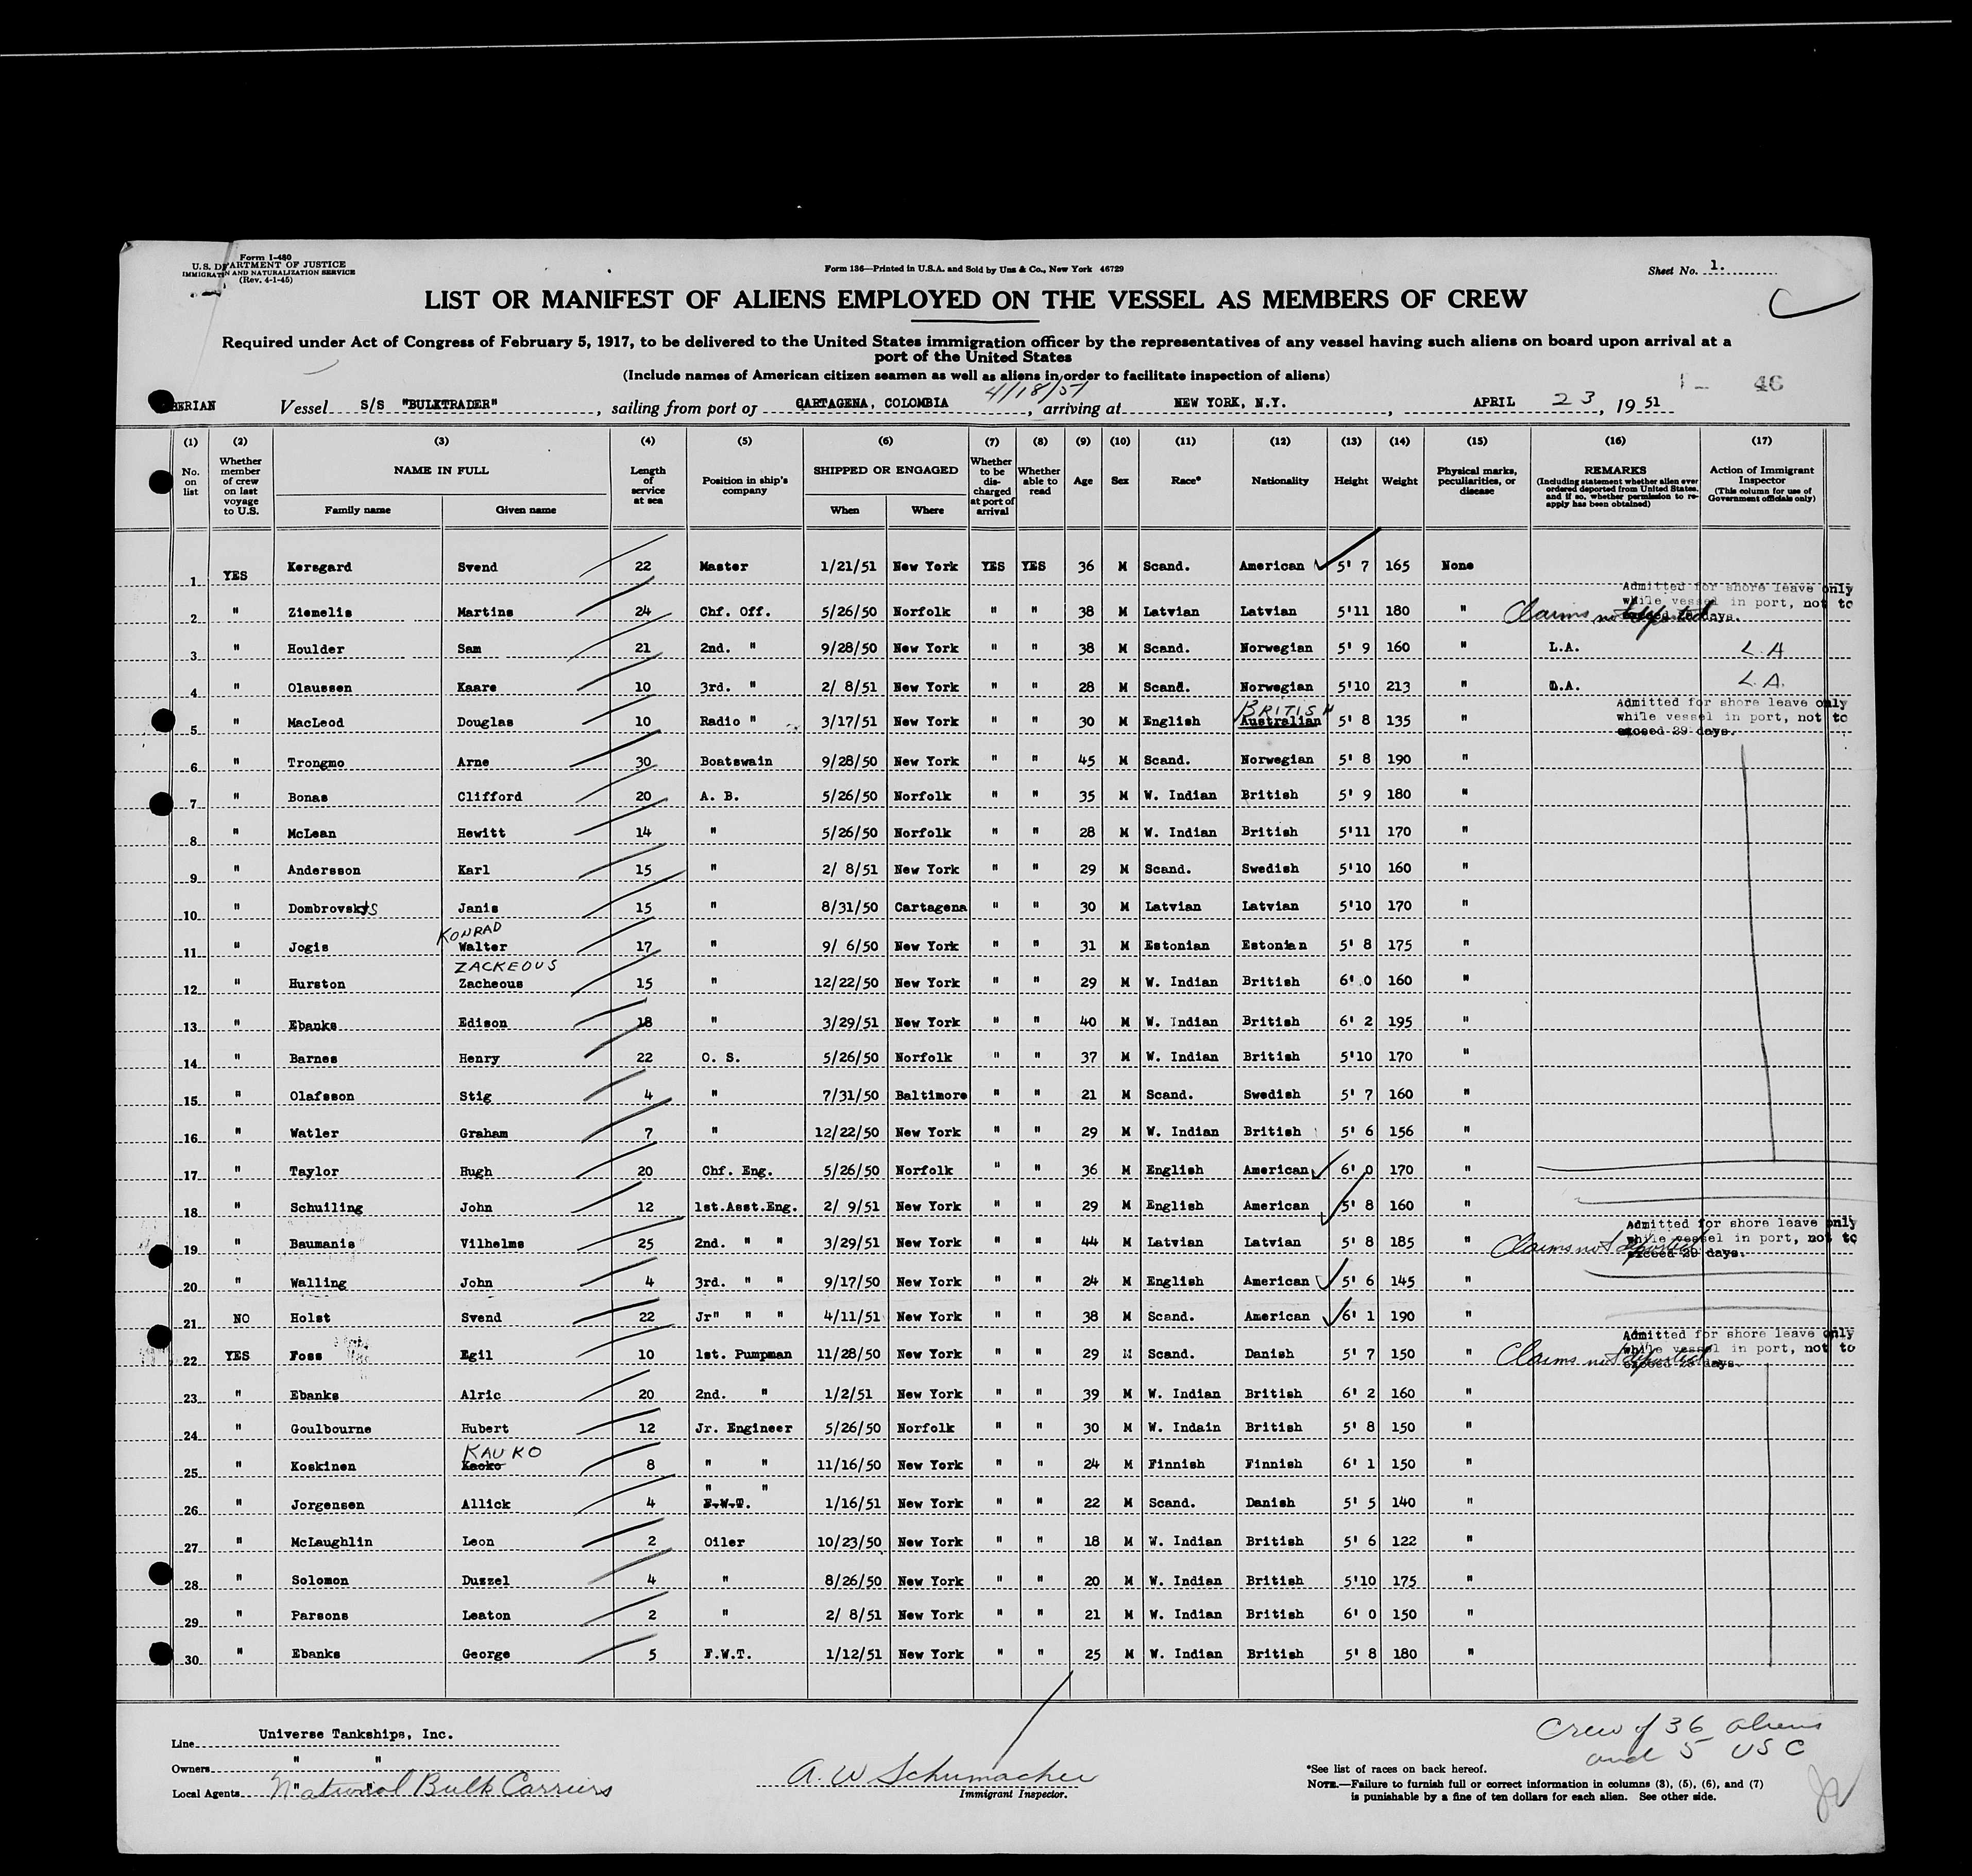 Form I-480
U. S. DEPARTMENT OF JUSTICE
IMMIGRATION AND NATURALIZATION SERVICE
(Rev. 4-1-45)
Form 136—Printed in U.S.A. and Sold by Unz & Co., New York 46729
Sheet No. 1.
LIST OR MANIFEST OF ALIENS EMPLOYED ON THE VESSEL AS MEMBERS OF CREW
Required under Act of Congress of February 5, 1917, to be delivered to the United States immigration officer by the representatives of any vessel having such aliens on board upon arrival at a
port of the United States
(Include names of American citizen seamen as well as aliens in order to facilitate inspection of aliens)
4/18/51
46
BERIAN Vessel S/S "BULKTRADER", sailing from port of CARTAGENA, COLOMBIA, arriving at NEW YORK, N.Y., APRIL 23, 1951
(1) (2) (3) (4) (5) (6) (7) (8) (9) (10) (11) (12) (13) (14) (15) (16) (17)
No. on list
Whether member of crew on last voyage to U.S.
NAME IN FULL
Family name Given name
Length of service at sea
Position in ship's company
SHIPPED OR ENGAGED
When Where
Whether to be discharged at port of arrival
Whether able to read
Age
Sex
Race*
Nationality
Height
Weight
Physical marks, peculiarities, or disease
REMARKS
(Including statement whether alien ever ordered deported from United States, and if so, whether permission to reapply has been obtained)
Action of Immigrant Inspector
(This column for use of Government officials only)
1 YES Kersgard Svend 22 Master 1/21/51 New York YES YES 36 M Scand. American 5' 7 165 None
Admitted for shore leave only
while vessel in port, not to
exceed 29 days.
2 " Ziemelis Martins 24 Chf. Off. 5/26/50 Norfolk " " 38 M Latvian Latvian 5'11 180 " Claims not deported
3 " Houlder Sam 21 2nd. " 9/28/50 New York " " 38 M Scand. Norwegian 5' 9 160 " L.A. L.A
4 " Olaussen Kaare 10 3rd. " 2/ 8/51 New York " " 28 M Scand. Norwegian 5'10 213 " L.A. L.A.
BRITISH
5 " MacLeod Douglas 10 Radio " 3/17/51 New York " " 30 M English Australian 5' 8 135 "
Admitted for shore leave only
while vessel in port, not to
exceed 29 days.
6 " Trongmo Arne 30 Boatswain 9/28/50 New York " " 45 M Scand. Norwegian 5' 8 190 "
7 " Bonas Clifford 20 A. B. 5/26/50 Norfolk " " 35 M W. Indian British 5' 9 180 "
8 " McLean Hewitt 14 " 5/26/50 Norfolk " " 28 M W. Indian British 5'11 170 "
9 " Andersson Karl 15 " 2/ 8/51 New York " " 29 M Scand. Swedish 5'10 160 "
10 " Dombrovskis Janis 15 " 8/31/50 Cartagena " " 30 M Latvian Latvian 5'10 170 "
KONRAD
11 " Jogis Walter 17 " 9/ 6/50 New York " " 31 M Estonian Estonian 5' 8 175 "
ZACKEOUS
12 " Hurston Zacheous 15 " 12/22/50 New York " " 29 M W. Indian British 6' 0 160 "
13 " Ebanks Edison 18 " 3/29/51 New York " " 40 M W. Indian British 6' 2 195 "
14 " Barnes Henry 22 O. S. 5/26/50 Norfolk " " 37 M W. Indian British 5'10 170 "
15 " Olafsson Stig 4 " 7/31/50 Baltimore " " 21 M Scand. Swedish 5' 7 160 "
16 " Watler Graham 7 " 12/22/50 New York " " 29 M W. Indian British 5' 6 156 "
17 " Taylor Hugh 20 Chf. Eng. 5/26/50 Norfolk " " 36 M English American 6' 0 170 "
18 " Schuiling John 12 1st.Asst.Eng. 2/ 9/51 New York " " 29 M English American 5' 8 160 "
Admitted for shore leave only
while vessel in port, not to
exceed 29 days.
19 " Baumanis Vilhelms 25 2nd. " " 3/29/51 New York " " 44 M Latvian Latvian 5' 8 185 " Claims not deported
20 " Walling John 4 3rd. " " 9/17/50 New York " " 24 M English American 5' 6 145 "
21 NO Holst Svend 22 Jr" " " 4/11/51 New York " " 38 M Scand. American 6' 1 190 "
Admitted for shore leave only
while vessel in port, not to
exceed 29 days.
22 YES Foss Egil 10 1st. Pumpman 11/28/50 New York " " 29 M Scand. Danish 5' 7 150 " Claims not deported
23 " Ebanks Alric 20 2nd. " 1/2/51 New York " " 39 M W. Indian British 6' 2 160 "
24 " Goulbourne Hubert 12 Jr. Engineer 5/26/50 Norfolk " " 30 M W. Indain British 5' 8 150 "
KAUKO
25 " Koskinen Kaoko 8 " " 11/16/50 New York " " 24 M Finnish Finnish 6' 1 150 "
" "
26 " Jorgensen Allick 4 F.W.T. 1/16/51 New York " " 22 M Scand. Danish 5' 5 140 "
27 " McLaughlin Leon 2 Oiler 10/23/50 New York " " 18 M W. Indian British 5' 6 122 "
28 " Solomon Duzzel 4 " 8/26/50 New York " " 20 M W. Indian British 5'10 175 "
29 " Parsons Leaton 2 " 2/ 8/51 New York " " 21 M W. Indian British 6' 0 150 "
30 " Ebanks George 5 F.W.T. 1/12/51 New York " " 25 M W. Indian British 5' 8 180 "
Line Universe Tankships, Inc.
Owners " "
Local Agents " " National Bulk Carriers
A. W Schumacher
Immigrant Inspector.
Crew of 36 aliens
and 5 USC
*See list of races on back hereof.
NOTE.—Failure to furnish full or correct information in columns (3), (5), (6), and (7)
is punishable by a fine of ten dollars for each alien. See other side.